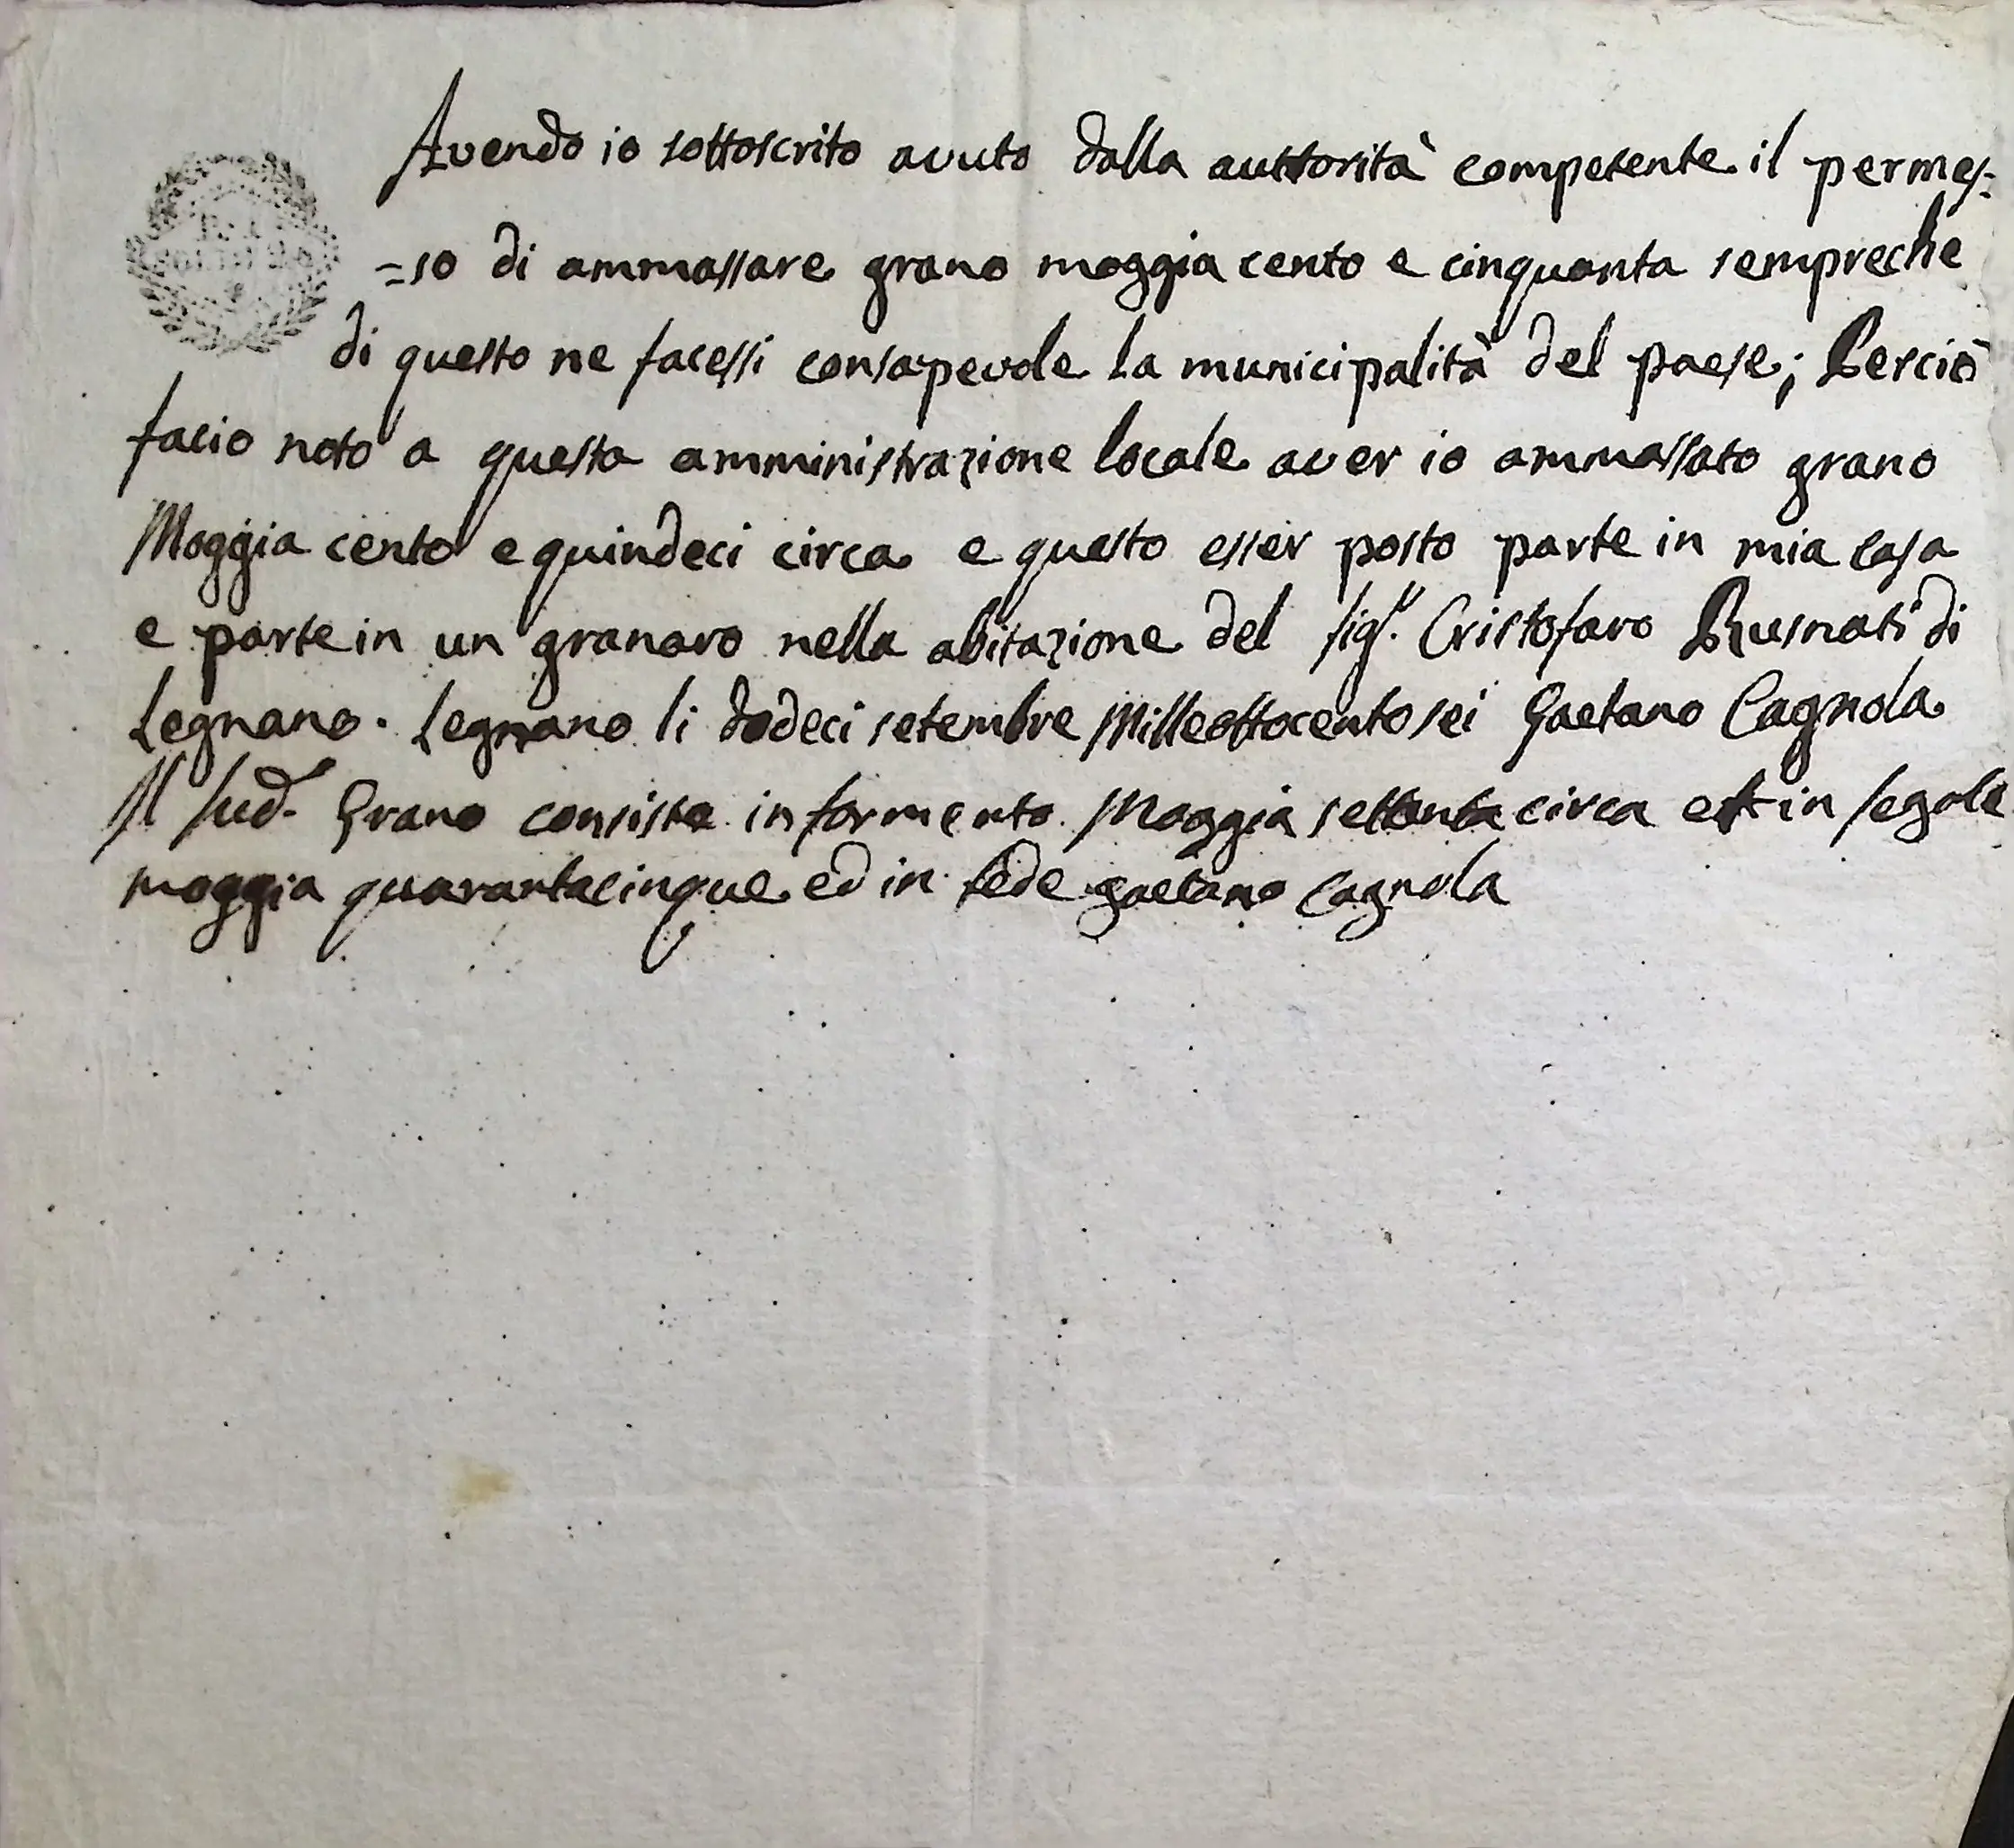 Avendo io sottoscrito avuto dalla auttorità competente il permes:
=so di ammassare grano moggia cento e cinquanta sempreche
di questo ne facessi consapevole la municipalità del paese; Perciò
facio noto a questa amministrazione locale aver io ammassato grano
Moggia cento e quindeci circa e questo esser posto parte in mia casa
e parte in un granaro nella abitazione del sigr. Cristofaro Rusnati di
Legnano. Legnano li dodeci setembre Milleottocentosei Gaetano Cagnola
Il sud. Grano consiste in formento Moggia settanta circa et in segale
moggia quarantacinque ed in fede gaetano Cagnola